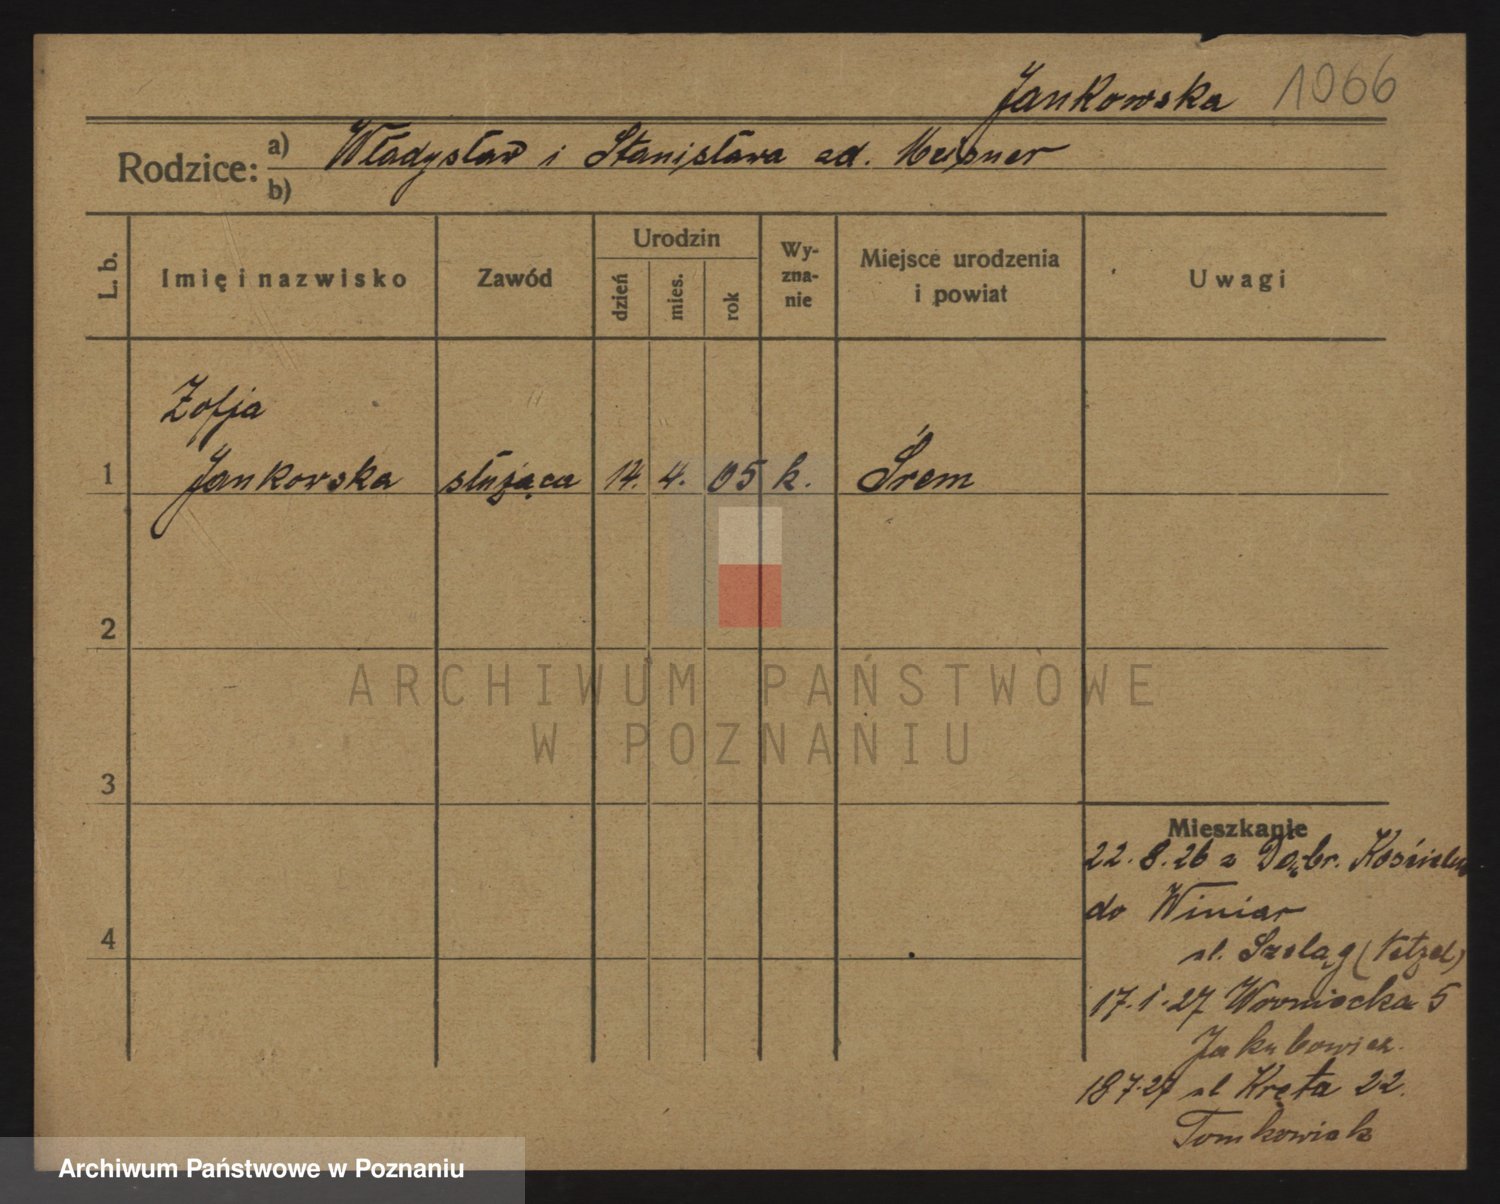 Jankowska 1066
Rodzice:
a) Władysław i Stanisława zd. Meisner
b)
L. b.
Imię i nazwisko
Zawód
Urodzin
dzień
mies.
rok
Wy-
zna-
nie
Miejsce urodzenia
i powiat
Uwagi
Zofja
1 Jankowska służąca 14. 4. 05 k. Śrem
2
3
4
Mieszkanie
22.8.26 z
do Winiar
ul. Szeląg
17.1.27 Wroniecka 5
Jakubowicz.
18 7.27 ul Kręta 22.
Tomkowiak
ARCHIWUM PAŃSTWOWE
W POZNANIU
Archiwum Państwowe w Poznaniu